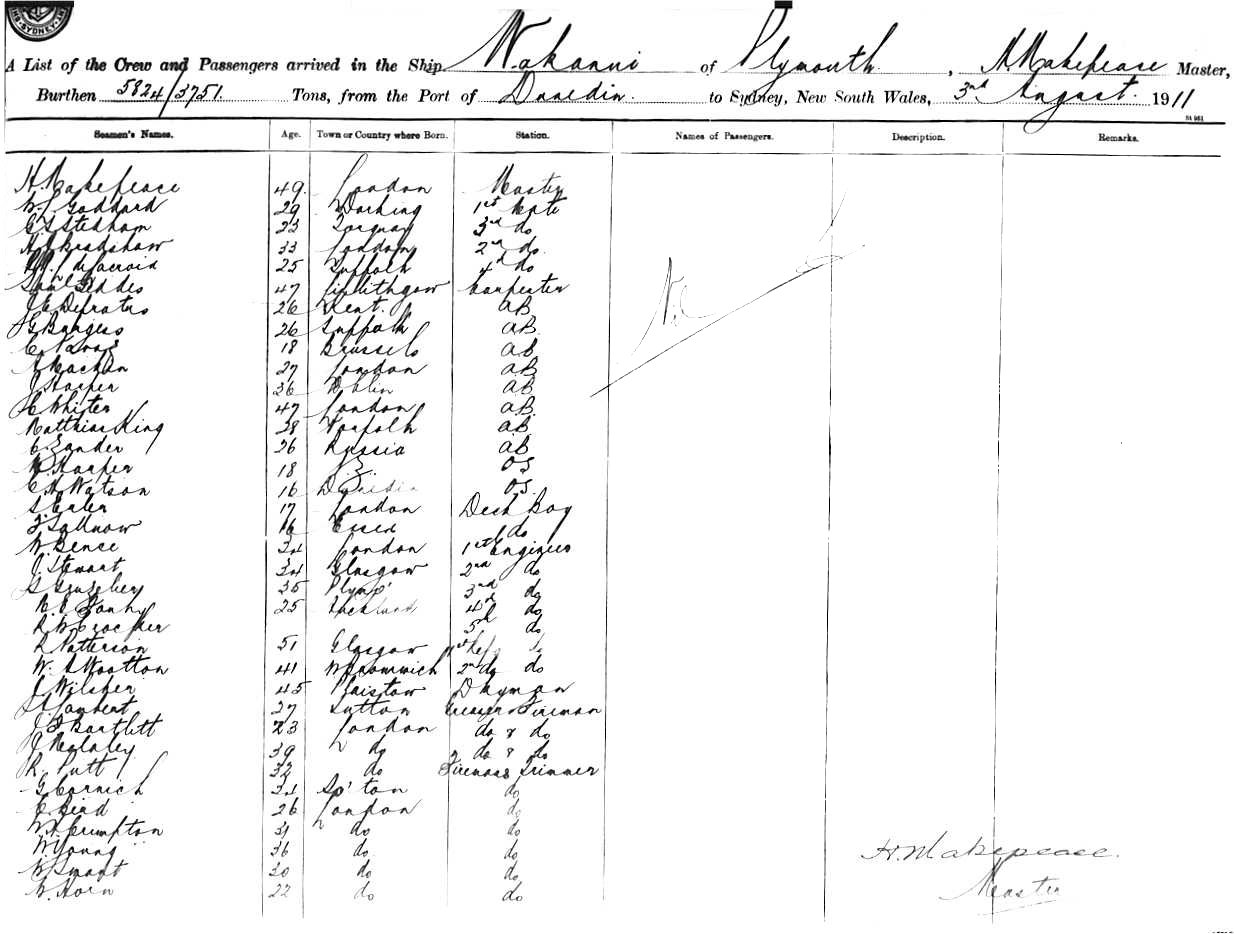 SYDNEY
A List of the Crew and Passengers arrived in the Ship Wakanui of Plymouth, H Makepeace Master,
Burthen 5824/3751. Tons, from the Port of Dunedin. to Sydney, New South Wales, 3rd August. 1911
Seamen's Names. Age. Town or Country where Born. Station. Names of Passengers. Description. Remarks.
H. Makepeace 49. London Master
Goddard 29 Dorking 1st Mate
Stidham 23 Torquay 3rd do
Bradshaw 33 London 2nd do.
25 Suffolk 4th do
Geddes 47 Linlithgow Carpenter
26 Kent. AB
G Burgess 26 Suffolk AB.
18 Brussels AB
27 London AB
J Harper 36 Dublin AB
Whiter 47 London AB.
Matthias King 28 Norfolk AB.
C. Zander 26 Russia AB
Harper 18 N.Z. OS
C A Watson 16 Dunedin OS.
17 London Deck Boy
16 Essex do
W Bence 34 London 1st Engineer
J. Stewart 34 Glasgow 2nd do
35 Plym' 3rd do
25 Auckland 4th do
R. W. Crocker 5th do
R Patterson 51 Glasgow 1st Refg do
W. A Wootton 41 W Bromwich 2nd do do
J Wilsher 45 Plaistow Dayman
Lambert 27 Sutton Greaser & Fireman
J F Bartlett 23 London do & do
39 do do & do
R. Putt 32 do Fireman & Trimmer
G Cornich 24 So'ton do
C. Bird 26 London do
W A Crumpton 31 do do
W. Young 36 do do
W Smart 30 do do
W. Horn 22 do do
Nil
H. Makepeace.
Master